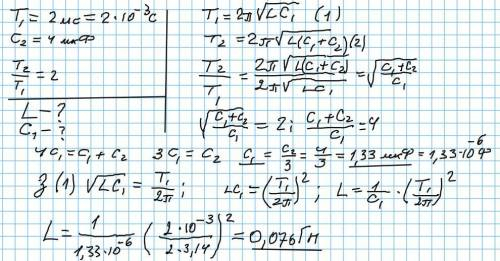 T₁ = 2 мс = 2·10⁻³ с
C₂ = 4 мкФ
T₂/T₁ = 2
L – ?
C₁ – ?
T₁ = 2π√LC₁ (1)
T₂ = 2π√L(C₁+C₂) (2)
T₂/T₁ = 2π√L(C₁+C₂) / 2π√LC₁ = √(C₁+C₂)/C₁
√(C₁+C₂)/C₁ = 2; (C₁+C₂)/C₁ = 4
4C₁ = C₁ + C₂ 3C₁ = C₂ C₁ = C₂/3 = 4/3 = 1,33 мкФ = 1,33·10⁻⁶ Ф
З (1) √LC₁ = T₁/2π; LC₁ = (T₁/2π)²; L = 1/C₁ · (T₁/2π)²
L = 1/1,33·10⁻⁶ (2·10⁻³/2·3,14)² = 0,076 Гн